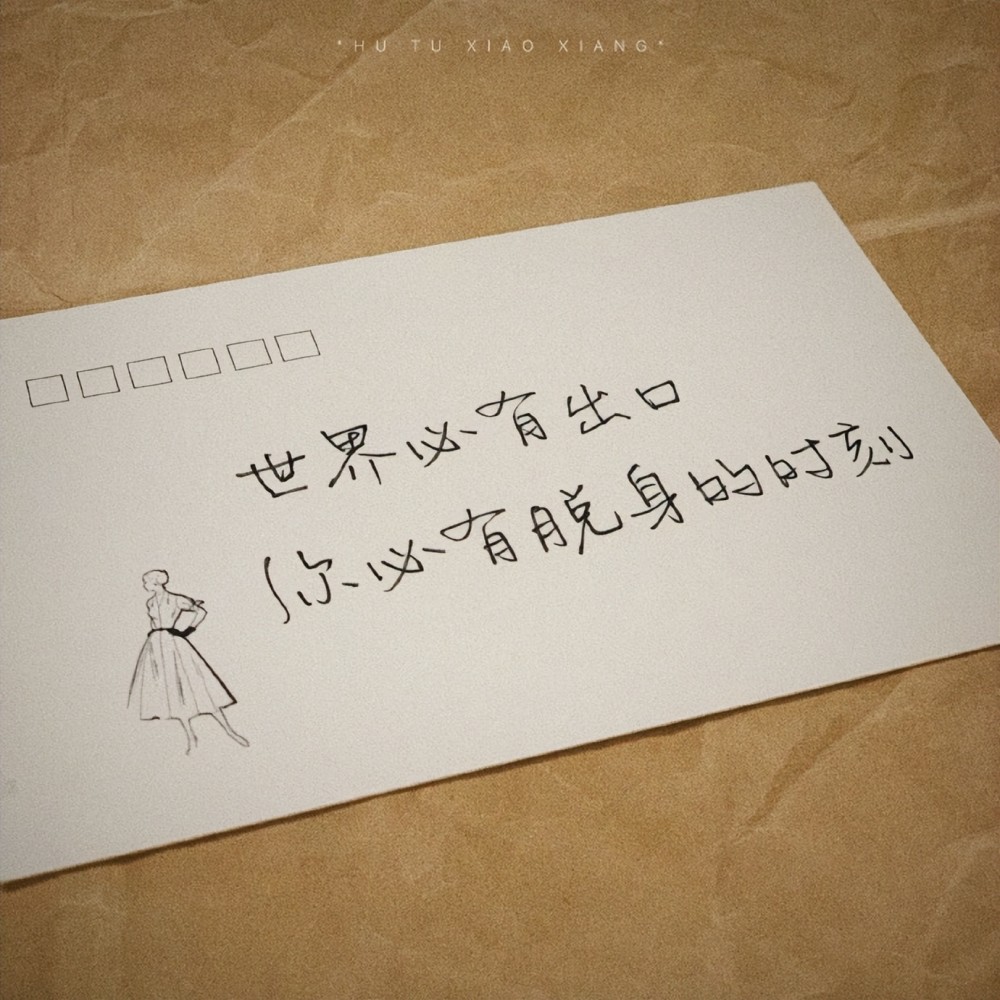 "HU TU XIAO XIANG"
世界必有出口
你必有脱身的时刻